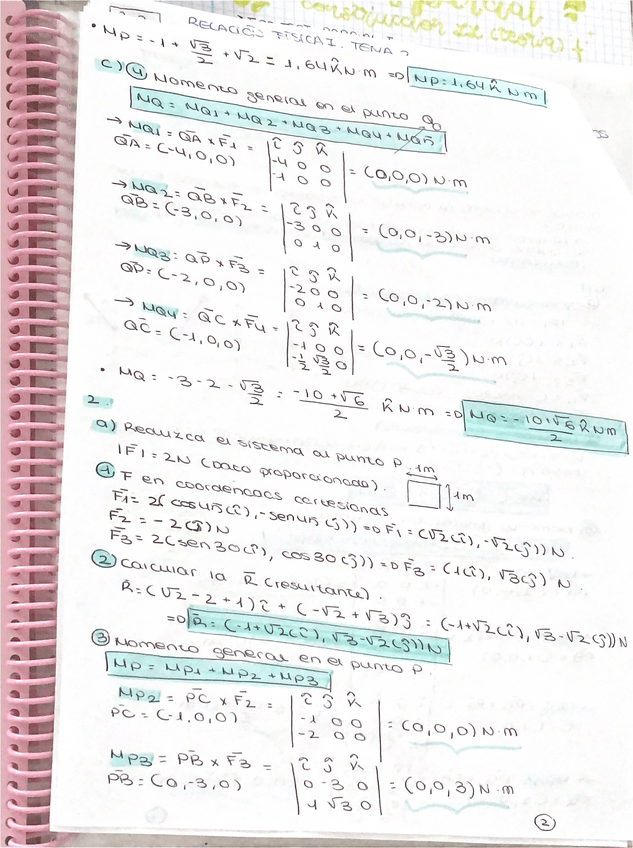 RELACIÓN FÍSICA I. TEMA 2
• Mp = -1 + √3/2 + √2 = 1,64 k̂ N·m => Mp = 1,64 k̂ Nm
c) ④ Momento general en el punto Q
MQ = MQ1 + MQ2 + MQ3 + MQ4 + MQ5
→ MQ1 = QA × F1 = | î ĵ k̂ | -4 0 0 | -1 0 0 | = (0,0,0) N·m
QA = (-4,0,0)
→ MQ2 = QB × F2 = | î ĵ k̂ | -3 0 0 | 0 1 0 | = (0,0,-3) N·m
QB = (-3,0,0)
→ MQ3 = QP × F3 = | î ĵ k̂ | -2 0 0 | 0 1 0 | = (0,0,-2) N·m
QP = (-2,0,0)
→ MQ4 = QC × F4 = | î ĵ k̂ | -1 0 0 | -1/2 √3/2 0 | = (0,0,-√3/2) N·m
QC = (-1,0,0)
• MQ = -3 - 2 - √3/2 = (-10+√6)/2 k̂ N·m => MQ = (-10+√6)/2 k̂ Nm
2.
a) Reduzca el sistema al punto P.
1m
|F| = 2N (dato proporcionado).
1m
① F en coordenadas cartesianas
F1 = 2(cos45(î), -sen45(ĵ)) => F1 = (√2(î), -√2(ĵ)) N.
F2 = -2(ĵ) N
F3 = 2(sen30(î), cos30(ĵ)) => F3 = (1(î), √3(ĵ)) N.
② Calcular la R (resultante).
R = (√2 - 2 + 1) î + (-√2 + √3) ĵ = (-1+√2(î), √3-√2(ĵ)) N
=> R = (-1+√2(î), √3-√2(ĵ)) N
③ Momento general en el punto P.
Mp = Mp1 + Mp2 + Mp3
Mp2 = PC × F2 = | î ĵ k̂ | -1 0 0 | -2 0 0 | = (0,0,0) N·m
PC = (-1,0,0)
Mp3 = PB × F3 = | î ĵ k̂ | 0 -3 0 | 1 √3 0 | = (0,0,3) N·m
PB = (0,-3,0)
②